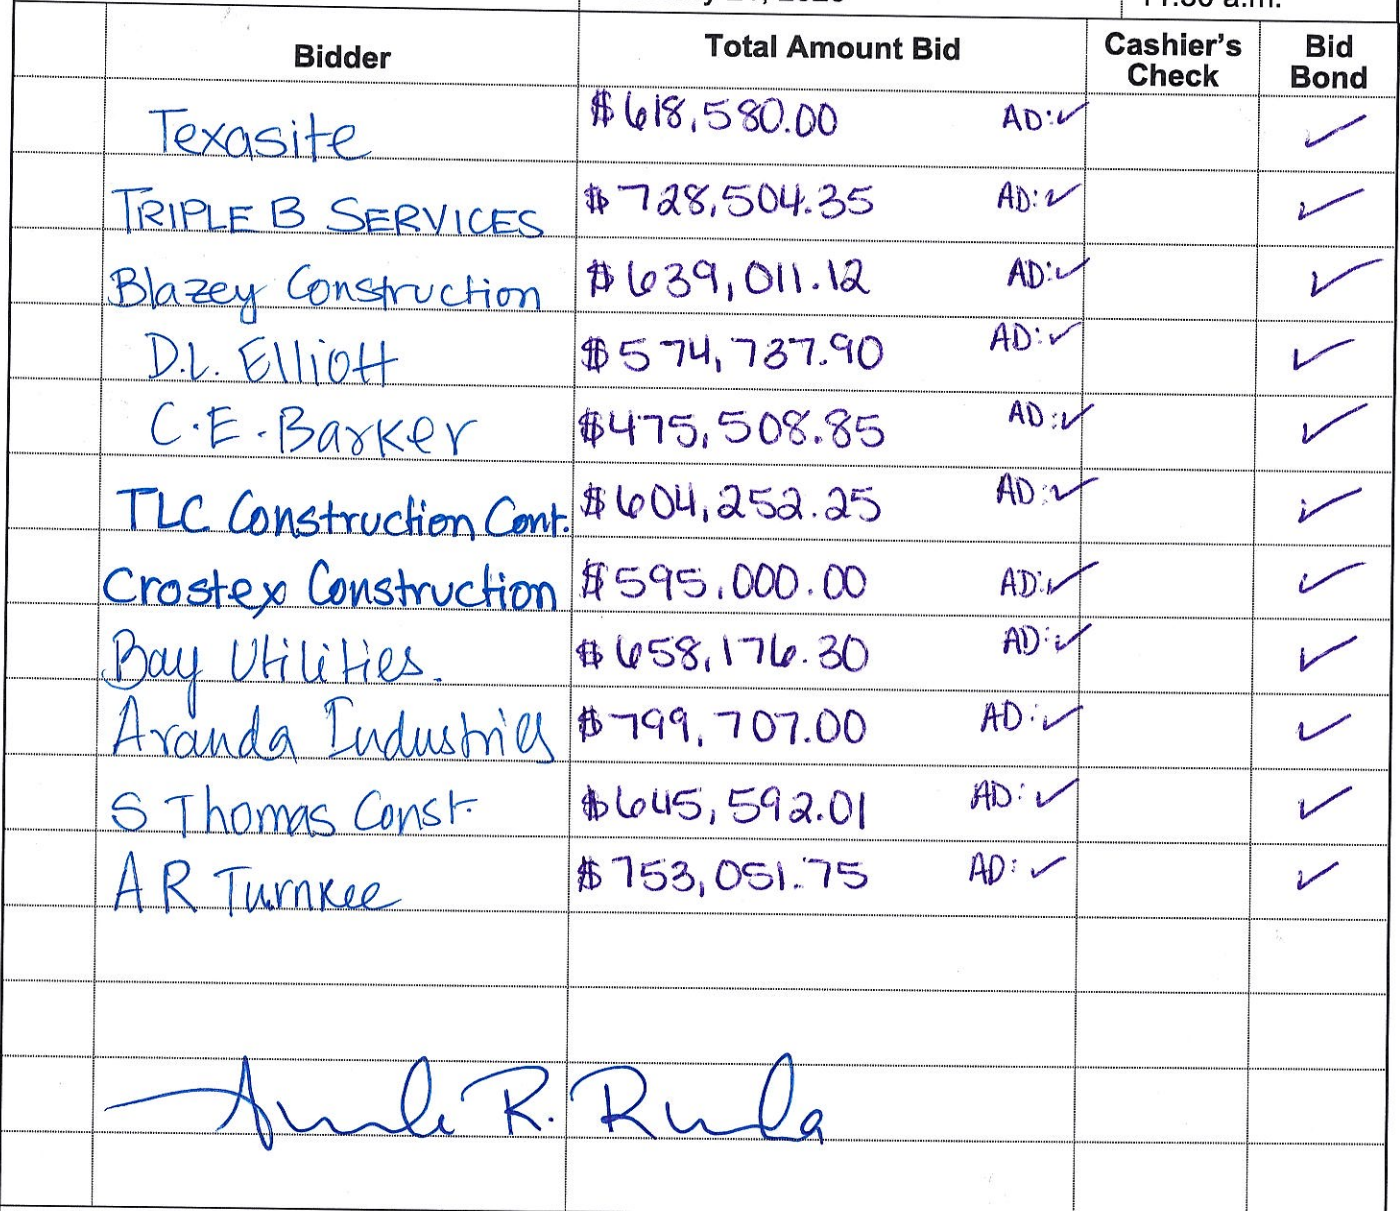 Bidder Total Amount Bid Cashier's Check Bid Bond
Texasite $618,580.00 AD:✓ ✓
TRIPLE B SERVICES $728,504.35 AD:✓ ✓
Blazey Construction $639,011.12 AD:✓ ✓
D.L. Elliott $574,737.90 AD:✓ ✓
C.E. Barker $475,508.85 AD:✓ ✓
TLC Construction Cont. $604,252.25 AD:✓ ✓
Crostex Construction $595,000.00 AD:✓ ✓
Bay Utilities. $658,176.30 AD:✓ ✓
Aranda Industries $799,707.00 AD:✓ ✓
S Thomas Const. $645,592.01 AD:✓ ✓
A R Turnkee $753,051.75 AD:✓ ✓
R.